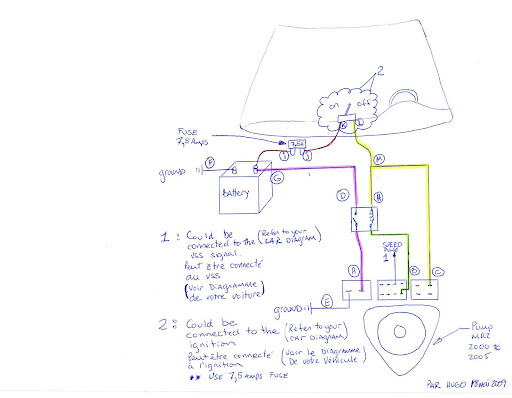 2
on off
K L
FUSE
7,5 Amps
7,5A
I J
ground F
G
M
Battery
D H
1 : Could be
connected to the (Refer to your
CAR DIAGRAM)
VSS signal.
Peut être connecté
au VSS
(Voir Diagramme
de votre voiture)
SPEED
1
A B C
E
GROUND
2 : Could be
connected to the (Refer to your
CAR DIAGRAM)
ignition
Peut être connecté (Voir le DIAGRAMME
De votre Véhicule)
à l'ignition
** USE 7,5 Amps FUSE
Pump
MR2
2000 to
2005
PAR HUGO 2009